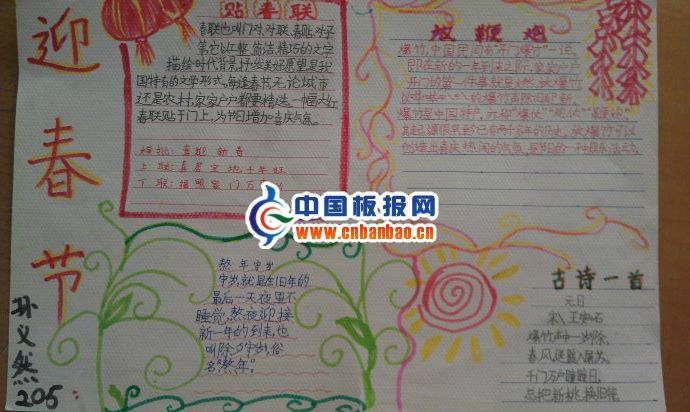 迎
春
节
孙义然
205
贴春联
春联也叫门对、对联、春贴、对子
第,它以工整、简洁、精巧的文字
描绘时代背景,抒发美好愿望是我
国特有的文学形式。每逢春节,无论城市
还是农村,家家户户都要精选一幅大红
春联贴于门上,为节日增加喜庆气氛。
横批:喜迎新春
放鞭炮
爆竹,中国民间有"开门爆竹"一说。
即在新的一年到来之际,家家户户
开门的第一件事就是燃放爆竹
以哔哔叭叭的爆竹声除旧迎新。
爆竹是中国特产,亦称"爆仗""炮仗""鞭炮"。
其起源很早,至今已有两千多年的历史。放爆竹可以
创造出喜庆热闹的气氛,是节日的一种娱乐活动
中国板报网
www.cnbanbao.cn
熬年守岁
守岁,就是在旧年的
最后一天夜里不
睡觉,熬夜迎接
新一年的到来,也
叫除夕守岁,俗
名"熬年"。
古诗一首
元日
宋 王安石
爆竹声中一岁除,
春风送暖入屠苏。
千门万户曈曈日,
总把新桃换旧符。